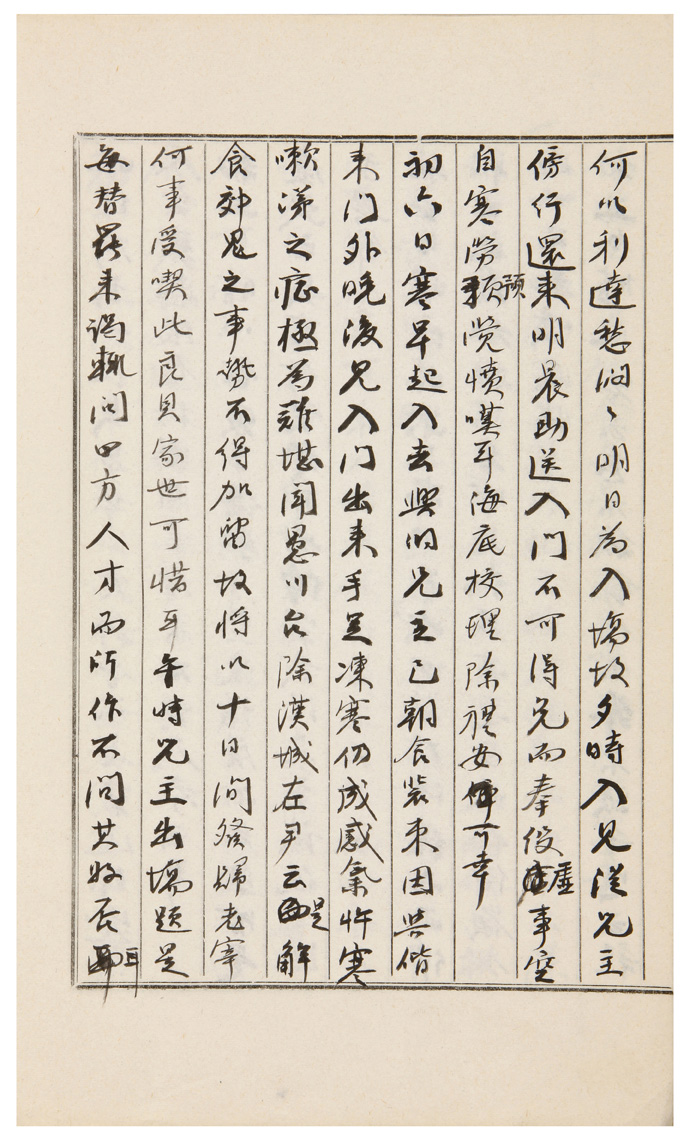 何以利達愁悶〻明日為入場故夕時入見從兄主
傍行還來明晨助送入門不可得兄而奉役虛事空
自寒勞預覺憤嘆耳海底校理除禮安可幸
初六日寒早起入去與明兄主已朝食裝束因與偕
來門外晚後兄入門出來手足凍寒仍成感氣作寒
嗽涕之症極為難堪聞愚川台除漢城左尹云是解
食郊思之事勢不得加留故將以十日間發歸老宰
何事受喫此良貝家世可惜耳午時兄主出場題是
每替罷來謁輒問四方人才而所作不問其好否耳